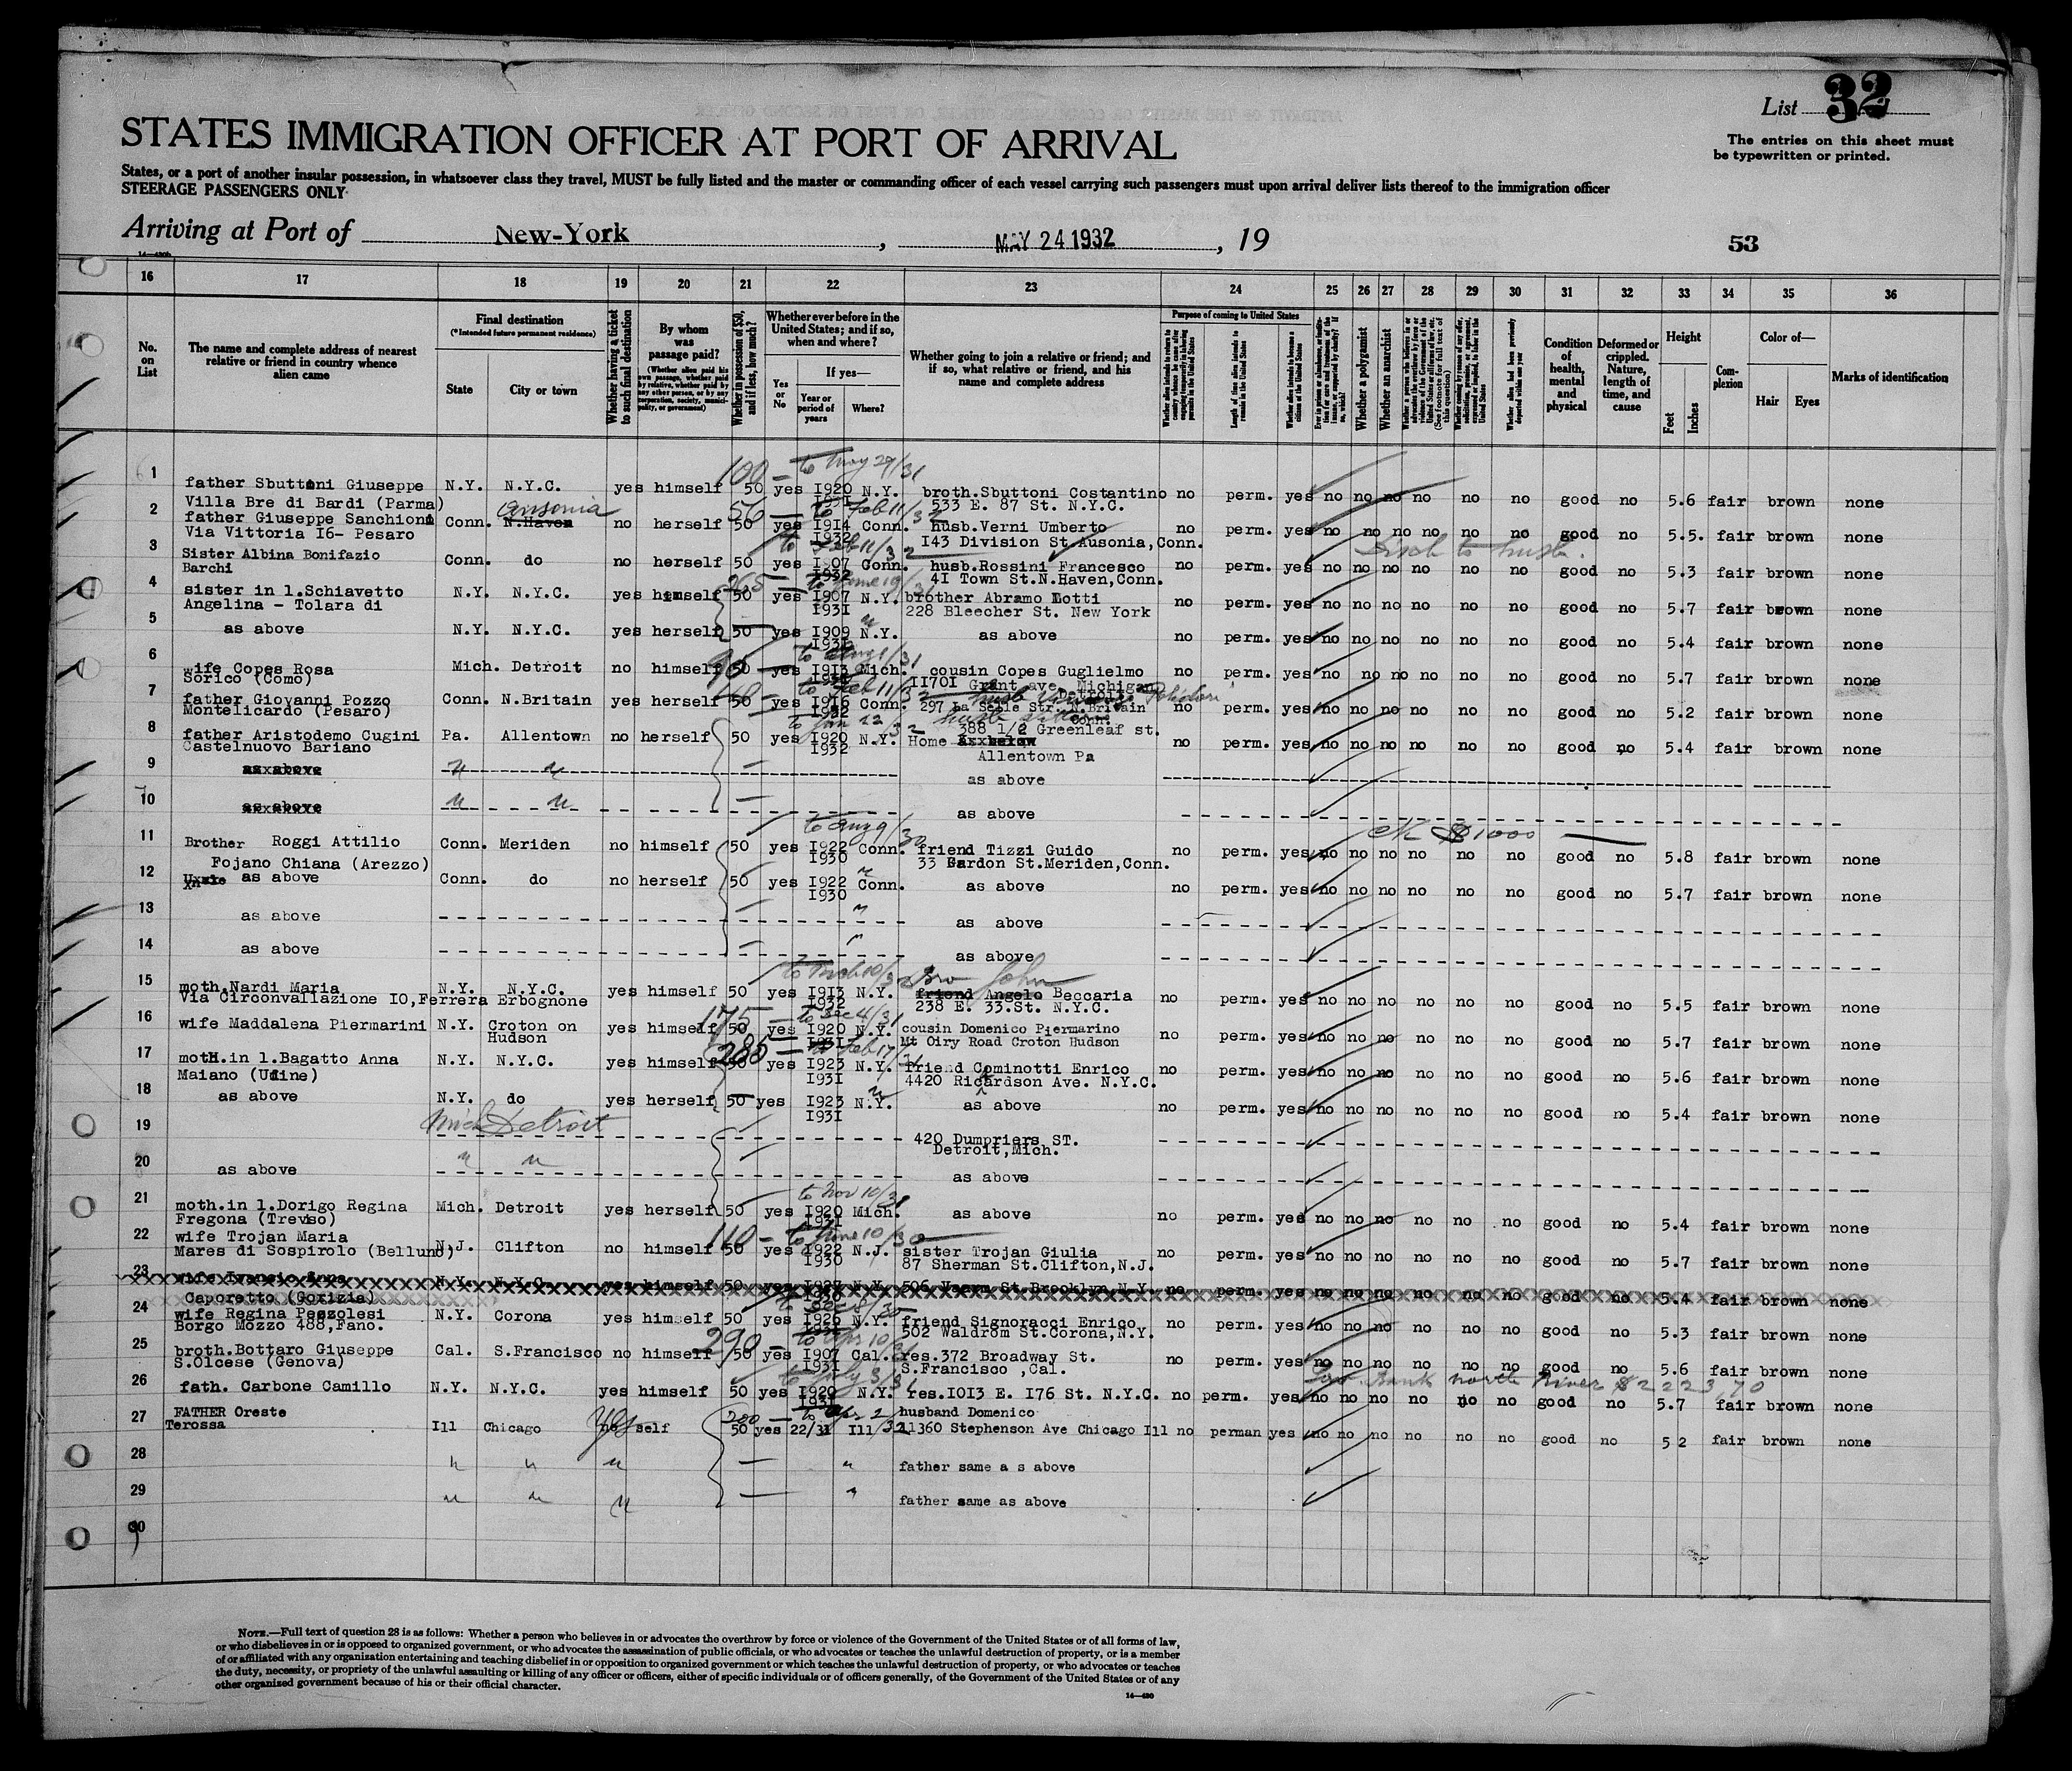 List 32
The entries on this sheet must
be typewritten or printed.
STATES IMMIGRATION OFFICER AT PORT OF ARRIVAL
States, or a port of another insular possession, in whatsoever class they travel, MUST be fully listed and the master or commanding officer of each vessel carrying such passengers must upon arrival deliver lists thereof to the immigration officer
STEERAGE PASSENGERS ONLY
Arriving at Port of New-York, MAY 24 1932, 19
53
16 17 18 19 20 21 22 23 24 25 26 27 28 29 30 31 32 33 34 35 36
No. on List
The name and complete address of nearest relative or friend in country whence alien came
Final destination
(*Intended future permanent residence)
State
City or town
Whether having a ticket to such final destination
By whom was passage paid?
(Whether alien paid his own passage, whether paid by relative, whether paid by any other person, or by any corporation, society, municipality, or government)
Whether in possession of $50, and if less, how much?
Whether ever before in the United States; and if so, when and where?
Yes or No
If yes—
Year or period of years
Where?
Whether going to join a relative or friend; and if so, what relative or friend, and his name and complete address
Purpose of coming to United States
Length of time alien intends to remain in the United States
Whether alien intends to become a citizen of the United States
Whether a polygamist
Whether an anarchist
Condition of health, mental and physical
Deformed or crippled. Nature, length of time, and cause
Height
Feet
Inches
Complexion
Color of—
Hair
Eyes
Marks of identification
100 — to May 29/31
1 father Sbuttoni Giuseppe N.Y. N.Y.C. yes himself 50 yes I920 N.Y. broth.Sbuttoni Costantino no perm. yes no no no no no no good no 5.6 fair brown none
Villa Bre di Bardi (Parma) I931 533 E. 87 St. N.Y.C.
Ansonia 56 — to Feb 11/32
2 father Giuseppe Sanchioni Conn. N.Haven no herself 50 yes I914 Conn. husb.Verni Umberto no perm. yes no no no no no no good no 5.5. fair brown none
Via Vittoria I6- Pesaro I932 I43 Division St Ausonia,Conn.
to Feb 11/32
3 Sister Albina Bonifazio Conn. do no herself 50 yes I907 Conn. husb.Rossini Francesco no perm. yes no no no no no no good no 5.3 fair brown none
Barchi I932 4I Town St.N.Haven,Conn.
265 — to June 19/31
4 sister in l.Schiavetto N.Y. N.Y.C. yes himself 50 yes I907 N.Y. brother Abramo Lotti no perm. yes no no no no no no good no 5.7 fair brown none
Angelina - Tolara di I93I 228 Bleecher St. New York
5 as above N.Y. N.Y.C. yes herself 50 yes I909 N.Y. as above no perm. yes no no no no no no good no 5.4 fair brown none
I931
6 wife Copes Rosa Mich. Detroit no himself 50 yes I913 Mich. cousin Copes Guglielmo no perm. yes no no no no no no good no 5.7 fair brown none
Sorico (Como) II70I Grant ave. Michigan
Detroit
to Feb 11/32
7 father Giovanni Pozzo Conn. N.Britain yes herself 50 yes I916 Conn. 297 La Salle Str. N.Britain no perm. yes no no no no no no good no 5.2 fair brown none
Montelicardo (Pesaro) I932 Conn.
to Jan 22/32
8 father Aristodemo Cugini Pa. Allentown no herself 50 yes I920 N.Y. Home 388 1/2 Greenleaf st. no perm. yes no no no no no no good no 5.4 fair brown none
Castelnuovo Bariano I932 Allentown Pa
9 as above " " — as above
10 as above " " — as above
to Aug 9/30 OK $1000
11 Brother Roggi Attilio Conn. Meriden no himself 50 yes I922 Conn. friend Tizzi Guido no perm. yes no no no no no no good no 5.8 fair brown none
Fojano Chiana (Arezzo) I930 33 Gardon St.Meriden,Conn.
12 as above Conn. do no herself 50 yes I922 Conn. as above no perm. yes no no no no no no good no 5.7 fair brown none
I930
13 as above — " as above
14 as above — " as above
to Mch 10/32 Bro John
15 moth.Nardi Maria N.Y. N.Y.C. yes himself 50 yes I9I3 N.Y. friend Angelo Beccaria no perm. yes no no no no no no good no 5.5 fair brown none
Via Circonvallazione IO,Ferrera Erbognone I932 238 E. 33.St. N.Y.C.
175 — to Dec 4/31
16 wife Maddalena Piermarini N.Y. Croton on Hudson yes himself 50 yes I920 N.Y. cousin Domenico Piermarino no perm. yes no no no no no no good no 5.7 fair brown none
I931 Mt Oiry Road Croton Hudson
285 — to Feb 17/31
17 motH.in l.Bagatto Anna N.Y. N.Y.C. yes himself 50 yes I923 N.Y. friend Cominotti Enrico no perm. yes no no no no no no good no 5.6 fair brown none
Maiano (Udine) I93I 4420 Ricardson Ave. N.Y.C.
18 as above N.Y. do yes herself 50 yes I923 N.Y. as above no perm. yes no no no no no no good no 5.4 fair brown none
I93I
19 Mich Detroit 420 Dumpriers ST.
Detroit,Mich.
20 as above " " — as above
to Nov 10/31
21 moth.in l.Dorigo Regina Mich. Detroit yes herself 50 yes I920 Mich. as above no perm. yes no no no no no no good no 5.4 fair brown none
Fregona (Treviso) I931
110 — to June 10/30
22 wife Trojan Maria N.J. Clifton no himself 50 yes I922 N.J. sister Trojan Giulia no perm. yes no no no no no no good no 5.7 fair brown none
Mares di Sospirolo (Belluno) I930 87 Sherman St.Clifton,N.J.
23 wife Ivancic Anna N.Y. N.Y.C. yes himself 50 yes I927 N.Y. 506 St.Brooklyn N.Y. no perm. yes no no no no no no good no 5.4 fair brown none
Caporetto (Gorizia)
to Dec 8/30
24 wife Regina Peszolesi N.Y. Corona yes himself 50 yes I926 N.Y. friend Signoracci Enrico no perm. yes no no no no no no good no 5.3 fair brown none
Borgo Mozzo 488,Fano. 502 Waldrom St.Corona,N.Y.
290 — to Apr 10/31
25 broth.Bottaro Giuseppe Cal. S.Francisco no himself 50 yes I907 Cal. res.372 Broadway St. no perm. yes no no no no no no good no 5.6 fair brown none
S.Olcese (Genova) I93I S.Francisco ,Cal.
to July 3/31 Bank North River $2223,70
26 fath. Carbone Camillo N.Y. N.Y.C. yes himself 50 yes I920 N.Y. res.IOI3 E. I76 St. N.Y.C. no perm. yes no no no no no no good no 5.7 fair brown none
200 — to Apr 2/32
27 FATHER Oreste Ill Chicago Yes self 50 yes 22/31 Ill husband Domenico
Terossa 11360 Stephenson Ave Chicago Ill no perman yes no no no no no no good no 5 2 fair brown none
28 " " " — " father same a s above
29 " " " — " father same as above
30
NOTE.—Full text of question 28 is as follows: Whether a person who believes in or advocates the overthrow by force or violence of the Government of the United States or of all forms of law,
or who disbelieves in or is opposed to organized government, or who advocates the assassination of public officials, or who advocates or teaches the unlawful destruction of property, or is a member
of or affiliated with any organization entertaining and teaching disbelief in or opposition to organized government or which teaches the unlawful destruction of property, or who advocates or teaches
the duty, necessity, or propriety of the unlawful assaulting or killing of any officer or officers, either of specific individuals or of officers generally, of the Government of the United States or of any
other organized government because of his or their official character.
14—430